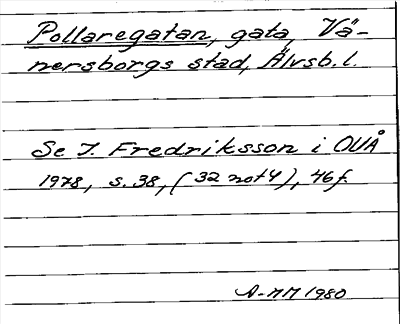 Pollaregatan, gata, Vä-
nersborgs stad, Älvsb. l.
Se I. Fredriksson i OUÅ
1978, s. 38, (32 not 4), 46 f.
A-MM 1980